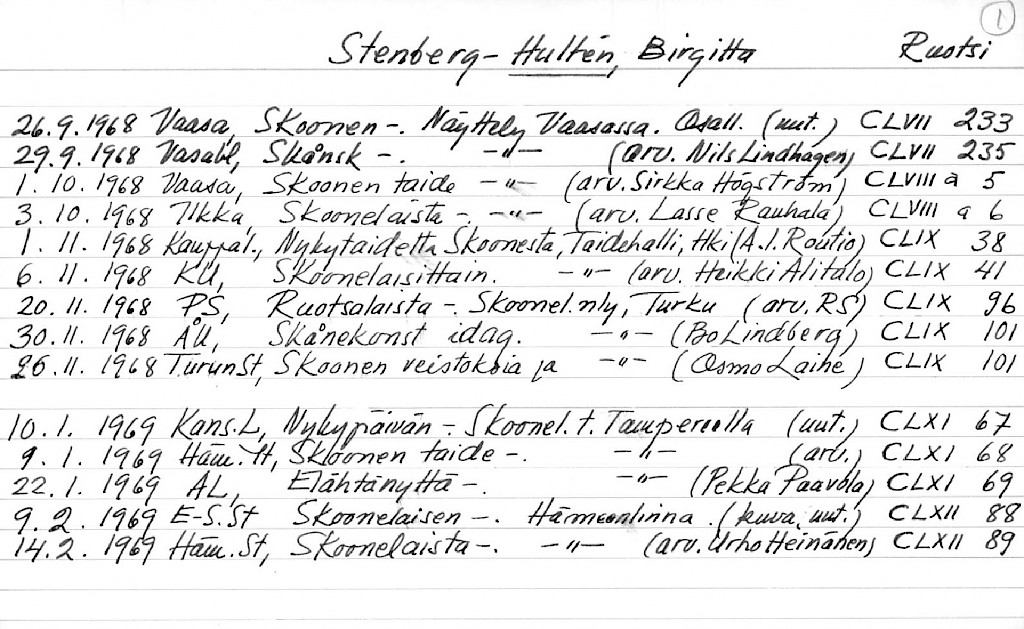 1
Stenberg-Hultén, Birgitta Ruotsi
26.9.1968 Vaasa, Skoonen -. Näyttely Vaasassa. Osall. (uut.) CLVII 233
29.9.1968 Vasabl, Skånsk -. -"- (arv. Nils Lindhagen) CLVII 235
1.10.1968 Vaasa, Skoonen taide -"- (arv. Sirkka Högström) CLVIII a 5
3.10.1968 Ilkka, Skoonelaista -. -"- (arv. Lasse Rauhala) CLVIII a 6
1.11.1968 Kauppal., Nykytaidetta Skoonesta, Taidehalli, Hki (A.I. Routio) CLIX 38
6.11.1968 KU, Skoonelaisittain. -"- (arv. Heikki Alitalo) CLIX 41
20.11.1968 PS, Ruotsalaista -. Skoonel. nly, Turku (arv. RS) CLIX 96
30.11.1968 ÅU, Skånekonst idag. -"- (Bo Lindberg) CLIX 101
26.11.1968 TurunSt, Skoonen veistoksia ja -"- (Osmo Laine) CLIX 101
10.1.1969 Kans.L, Nykypäivän -. Skoonel. t. Tampereella (uut.) CLXI 67
9.1.1969 Häm.Yt, Skoonen taide -. -"- (arv.) CLXI 68
22.1.1969 AL, Elähtänyttä -. -"- (Pekka Paavola) CLXI 69
9.2.1969 E-S.St Skoonelaisen -. Hämeenlinna. (kuva, uut.) CLXII 88
14.2.1969 Häm.St, Skoonelaista -. -"- (arv. Urho Heinänen) CLXII 89